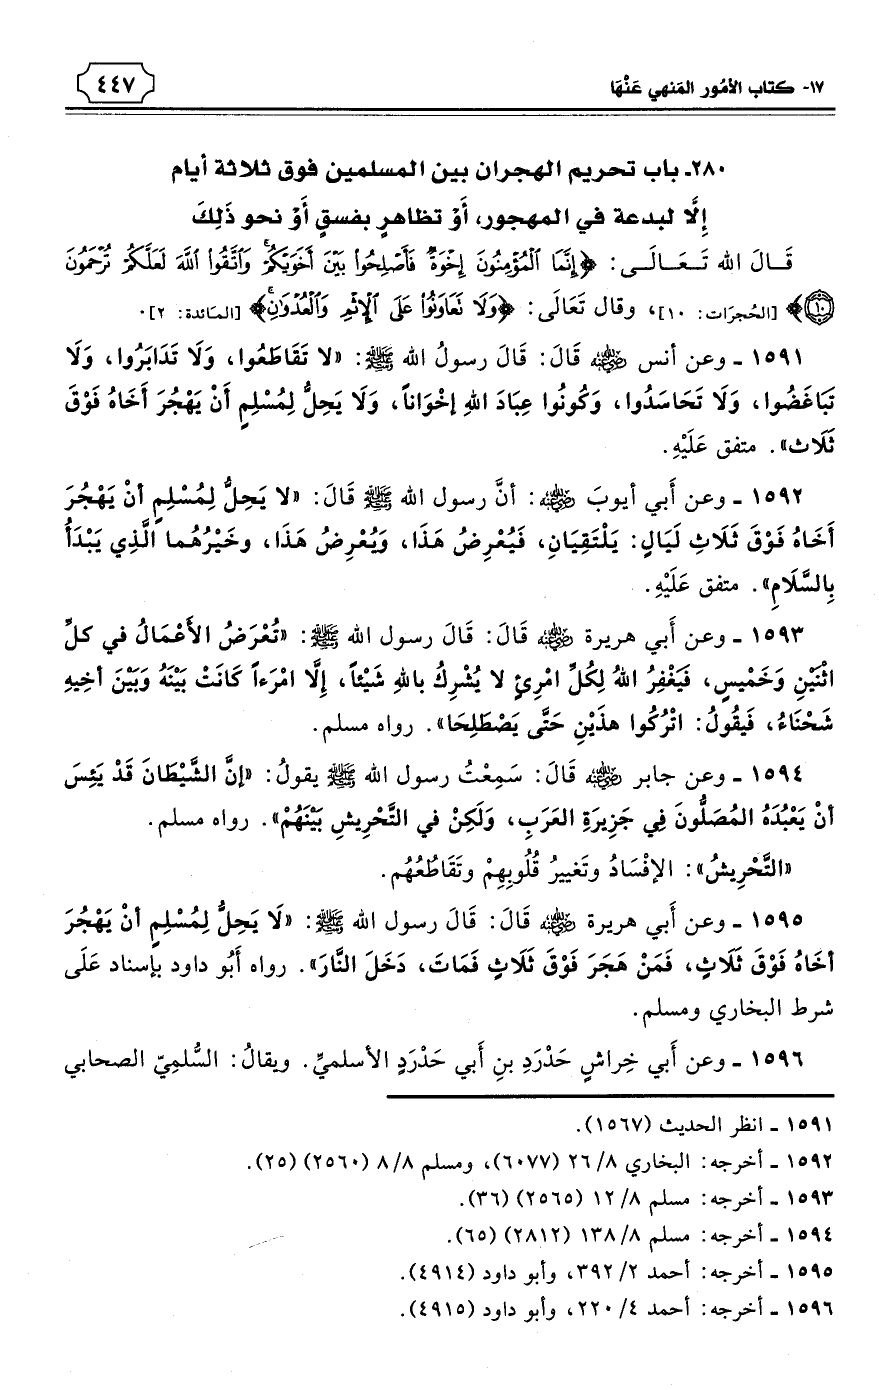 ١٧- كتاب الأمُور المَنهي عَنْهَا
٤٤٧
٢٨٠ـ باب تحريم الهجران بين المسلمين فوق ثلاثة أيام
إِلَّا لبدعة في المهجور، أَوْ تظاهرٍ بفسقٍ أَوْ نحو ذَلِكَ
قَـالَ الله تَـعَـالَـى: ﴿إِنَّمَا الْمُؤْمِنُونَ إِخْوَةٌ فَأَصْلِحُوا بَيْنَ أَخَوَيْكُمْ ۚ وَاتَّقُوا اللَّهَ لَعَلَّكُمْ تُرْحَمُونَ
﴿١٠﴾﴾ [الحُجرَات: ١٠]، وقال تَعَالَى: ﴿وَلَا تَعَاوَنُوا عَلَى الْإِثْمِ وَالْعُدْوَانِ ۚ﴾ [المَائدة: ٢].
١٥٩١ ـ وعن أنس ﵁ قَالَ: قَالَ رسولُ الله ﷺ: «لا تَقَاطَعُوا، وَلَا تَدَابَرُوا، وَلَا
تَبَاغَضُوا، وَلَا تَحَاسَدُوا، وَكُونُوا عِبَادَ اللهِ إخْوَاناً، وَلَا يَحِلُّ لِمُسْلِمٍ أَنْ يَهْجُرَ أَخَاهُ فَوْقَ
ثَلَاث». متفق عَلَيْهِ.
١٥٩٢ ـ وعن أَبي أيوبَ ﵁: أنَّ رسول الله ﷺ قَالَ: «لا يَحِلُّ لِمُسْلِمٍ أنْ يَهْجُرَ
أَخَاهُ فَوْقَ ثَلَاثِ لَيَالٍ: يَلْتَقِيَانِ، فَيُعْرِضُ هَذَا، وَيُعْرِضُ هَذَا، وخَيْرُهُما الَّذِي يَبْدَأُ
بِالسَّلَامِ». متفق عَلَيْهِ.
١٥٩٣ ـ وعن أَبي هريرة ﵁ قَالَ: قَالَ رسول الله ﷺ: «تُعْرَضُ الأَعْمَالُ في كلِّ
اثْنَيْنِ وَخَمْيسٍ، فَيَغْفِرُ اللهُ لِكُلِّ امْرِئٍ لا يُشْرِكُ بالله شَيْئاً، إِلَّا امْرَءاً كَانَتْ بَيْنَهُ وَبَيْنَ أخِيهِ
شَحْنَاءُ، فَيقُولُ: اتْرُكُوا هذَيْنِ حَتَّى يَصْطَلِحَا». رواه مسلم.
١٥٩٤ ـ وعن جابر ﵁ قَالَ: سَمِعْتُ رسول الله ﷺ يقولُ: «إنَّ الشَّيْطَانَ قَدْ يَئِسَ
أنْ يَعْبُدَهُ المُصَلُّونَ فِي جَزِيرَةِ العَرَبِ، وَلَكِنْ في التَّحْرِيشِ بَيْنَهُمْ». رواه مسلم.
«التَّحْرِيشُ»: الإفْسَادُ وتَغييرُ قُلُوبِهِمْ وتَقَاطُعُهُم.
١٥٩٥ ـ وعن أَبي هريرة ﵁ قَالَ: قَالَ رسول الله ﷺ: «لَا يَحِلُّ لِمُسْلِمٍ أنْ يَهْجُرَ
أخَاهُ فَوْقَ ثَلَاثٍ، فَمَنْ هَجَرَ فَوْقَ ثَلَاثٍ فَمَاتَ، دَخَلَ النَّارَ». رواه أَبُو داود بإسناد عَلَى
شرط البخاري ومسلم.
١٥٩٦ ـ وعن أَبي خِراشٍ حَدْرَدِ بنِ أَبي حَدْرَدٍ الأسلميِّ. ويقالُ: السُّلمِيّ الصحابي
١٥٩١ ـ انظر الحديث (١٥٦٧).
١٥٩٢ ـ أخرجه: البخاري ٨/ ٢٦ (٦٠٧٧)، ومسلم ٨/ ٨ (٢٥٦٠) (٢٥).
١٥٩٣ ـ أخرجه: مسلم ٨/ ١٢ (٢٥٦٥) (٣٦).
١٥٩٤ ـ أخرجه: مسلم ٨/ ١٣٨ (٢٨١٢) (٦٥).
١٥٩٥ ـ أخرجه: أحمد ٢/ ٣٩٢، وأبو داود (٤٩١٤).
١٥٩٦ ـ أخرجه: أحمد ٤/ ٢٢٠، وأبو داود (٤٩١٥).